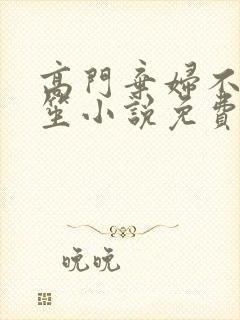 高門棄婦不
笙小說免費
晚晚